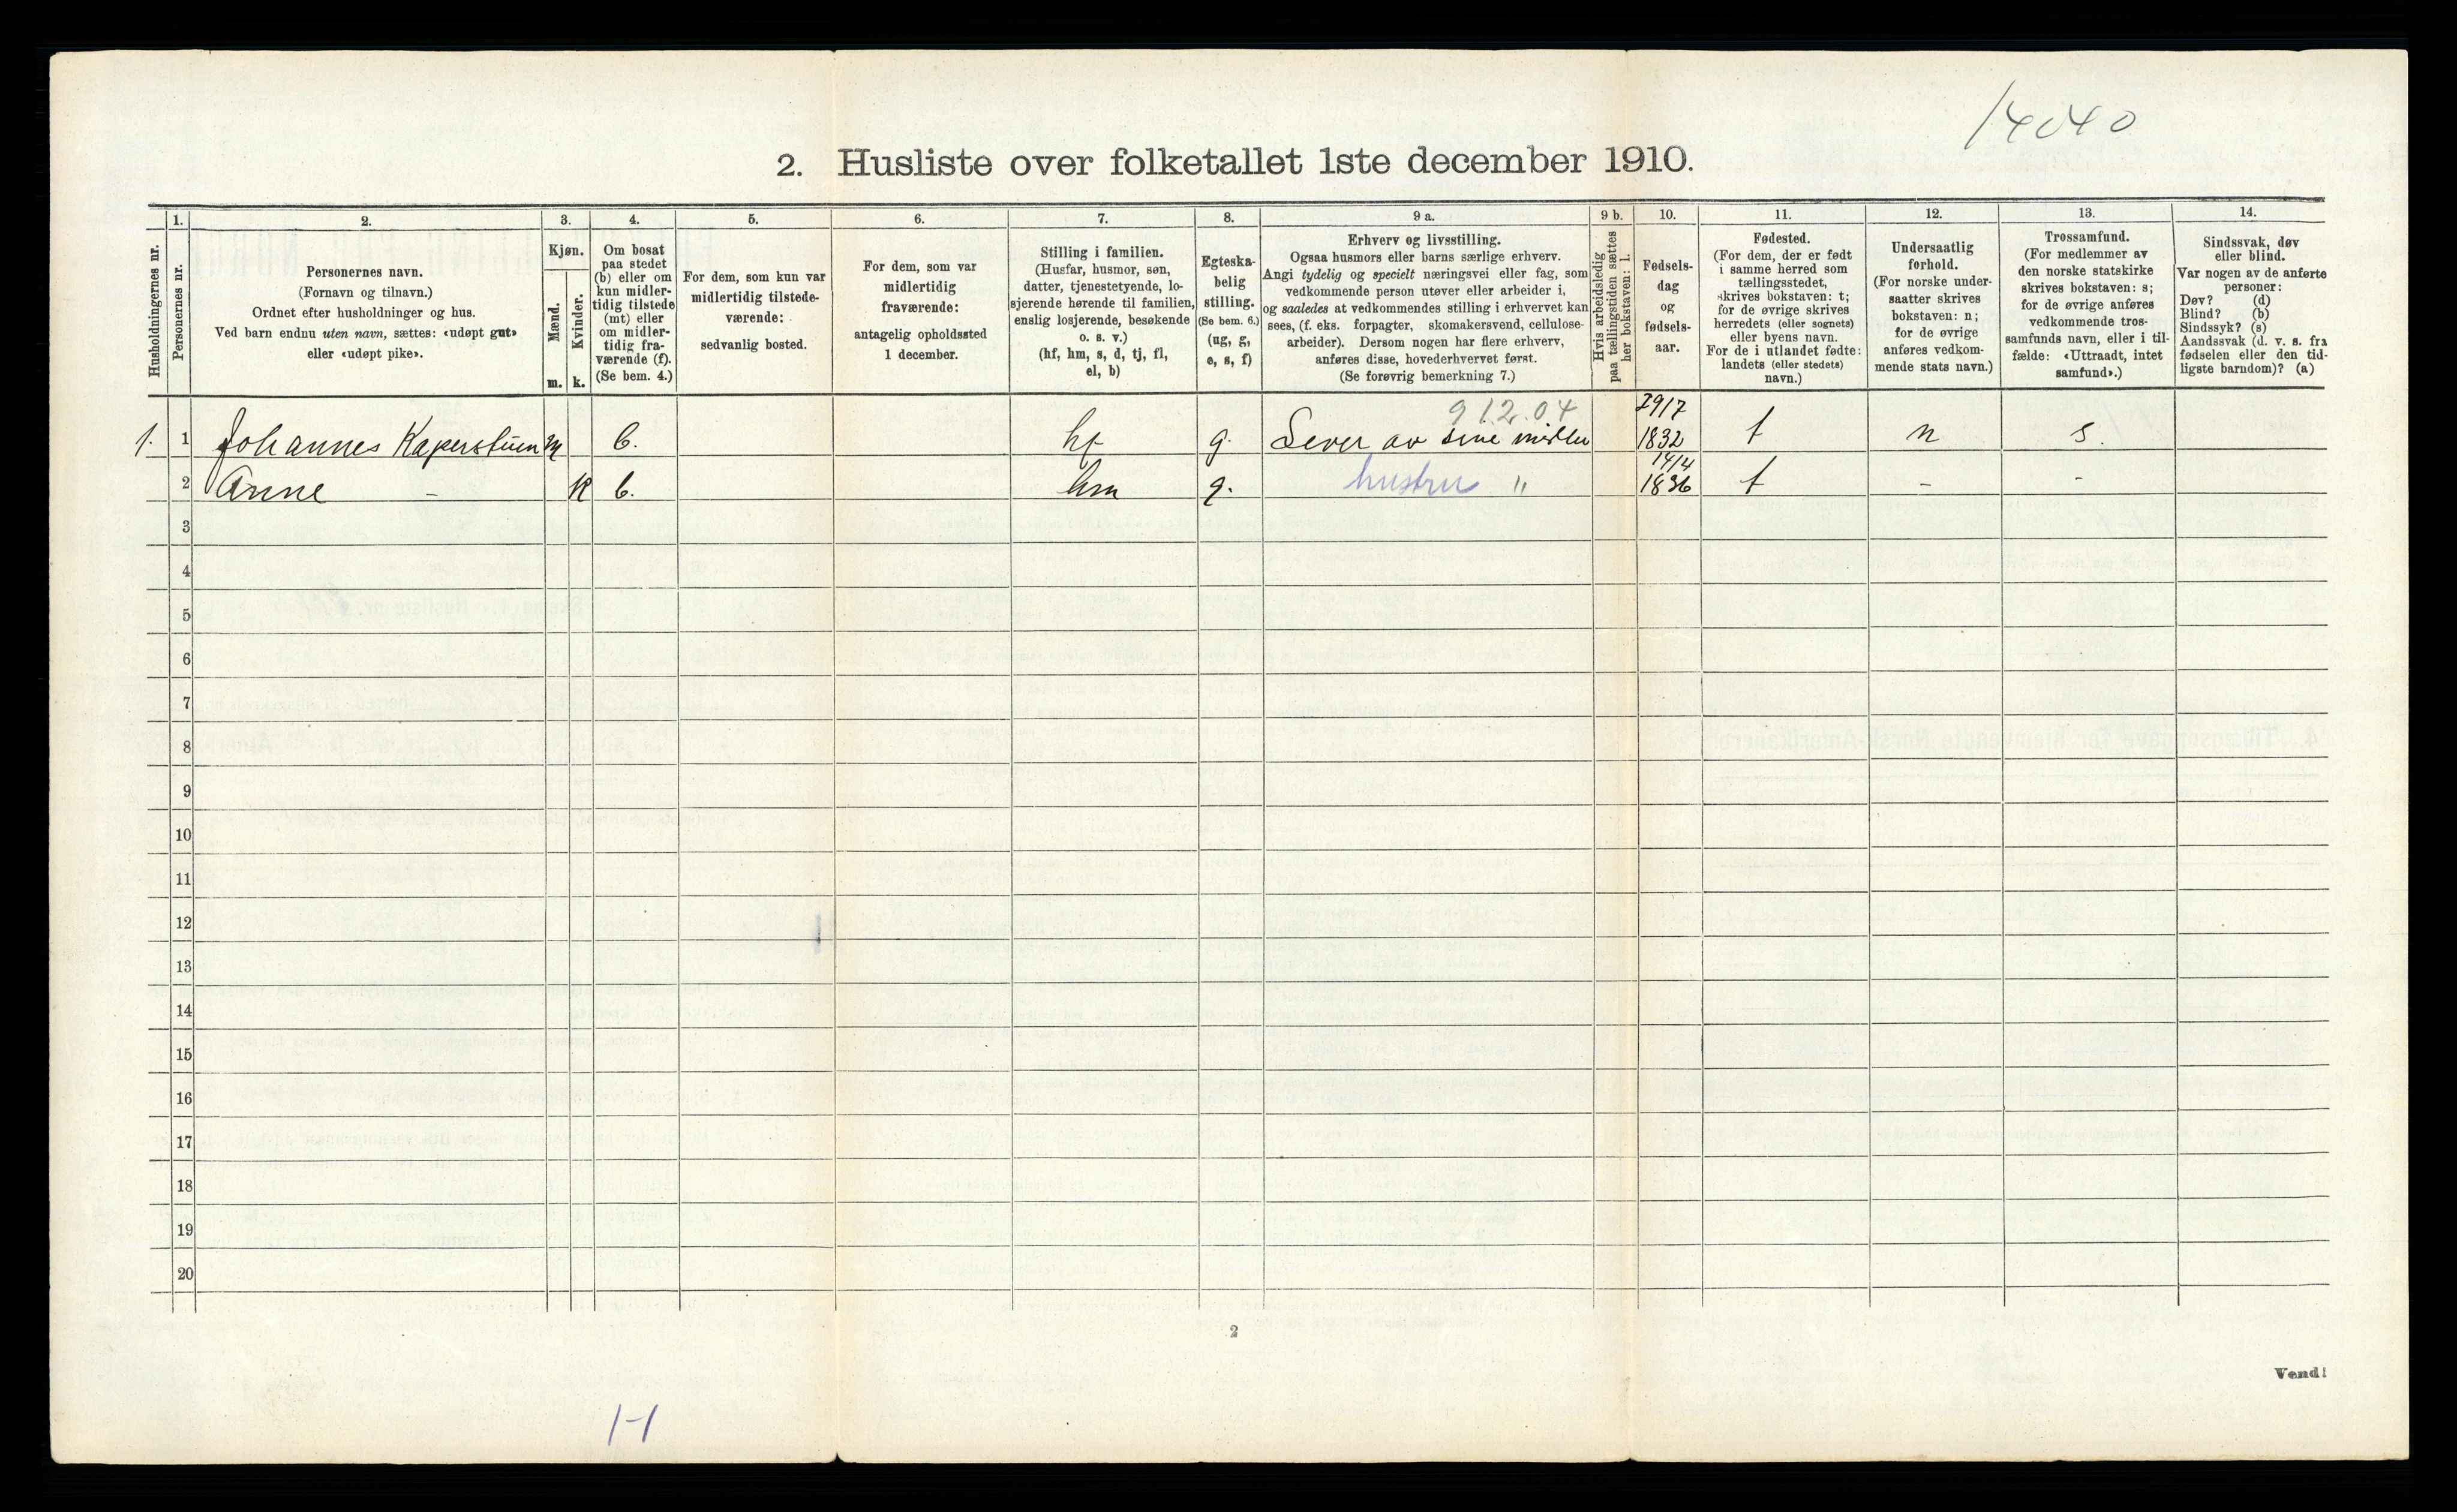 14040
2. Husliste over folketallet 1ste december 1910.
Husholdningernes nr.
1.
Personernes nr.
2.
Personernes navn.
(Fornavn og tilnavn.)
Ordnet efter husholdninger og hus.
Ved barn endnu uten navn, sættes: «udøpt gut»
eller «udøpt pike».
3.
Kjøn.
Mænd.
Kvinder.
m. k.
4.
Om bosat
paa stedet
(b) eller om
kun midler-
tidig tilstede
(mt) eller
om midler-
tidig fra-
værende (f).
(Se bem. 4.)
5.
For dem, som kun var
midlertidig tilstede-
værende:
sedvanlig bosted.
6.
For dem, som var
midlertidig
fraværende:
antagelig opholdssted
1 december.
7.
Stilling i familien.
(Husfar, husmor, søn,
datter, tjenestetyende, lo-
sjerende hørende til familien,
enslig losjerende, besøkende
o. s. v.)
(hf, hm, s, d, tj, fl,
el, b)
8.
Egteska-
belig
stilling.
(Se bem. 6.)
(ug, g,
e, s, f)
9 a.
Erhverv og livsstilling.
Ogsaa husmors eller barns særlige erhverv.
Angi tydelig og specielt næringsvei eller fag, som
vedkommende person utøver eller arbeider i,
og saaledes at vedkommendes stilling i erhvervet kan
sees, (f. eks. forpagter, skomakersvend, cellulose-
arbeider). Dersom nogen har flere erhverv,
anføres disse, hovederhvervet først.
(Se forøvrig bemerkning 7.)
9 b.
Hvis arbeidsledig
paa tællingstiden sættes
her bokstaven: l.
10.
Fødsels-
dag
og
fødsels-
aar.
11.
Fødested.
(For dem, der er født
i samme herred som
tællingsstedet,
skrives bokstaven: t;
for de øvrige skrives
herredets (eller sognets)
eller byens navn.
For de i utlandet fødte:
landets (eller stedets)
navn.)
12.
Undersaatlig
forhold.
(For norske under-
saatter skrives
bokstaven: n;
for de øvrige
anføres vedkom-
mende stats navn.)
13.
Trossamfund.
(For medlemmer av
den norske statskirke
skrives bokstaven: s;
for de øvrige anføres
vedkommende tros-
samfunds navn, eller i til-
fælde: «Uttraadt, intet
samfund».)
14.
Sindssvak, døv
eller blind.
Var nogen av de anførte
personer:
Døv? (d)
Blind? (b)
Sindssyk? (s)
Aandssvak (d. v. s. fra
fødselen eller den tid-
ligste barndom)? (a)
912.04 29/7
1. 1 Johannes Kaperstuen m b. hf g. Lever av sine midler 1832 t n s.
14/4
2 Anne – k b. hm g. hustru " 1836 t – –
3
4
5
6
7
8
9
10
11
12
13
14
15
16
17
18
19
20
2
Vend!
1-1